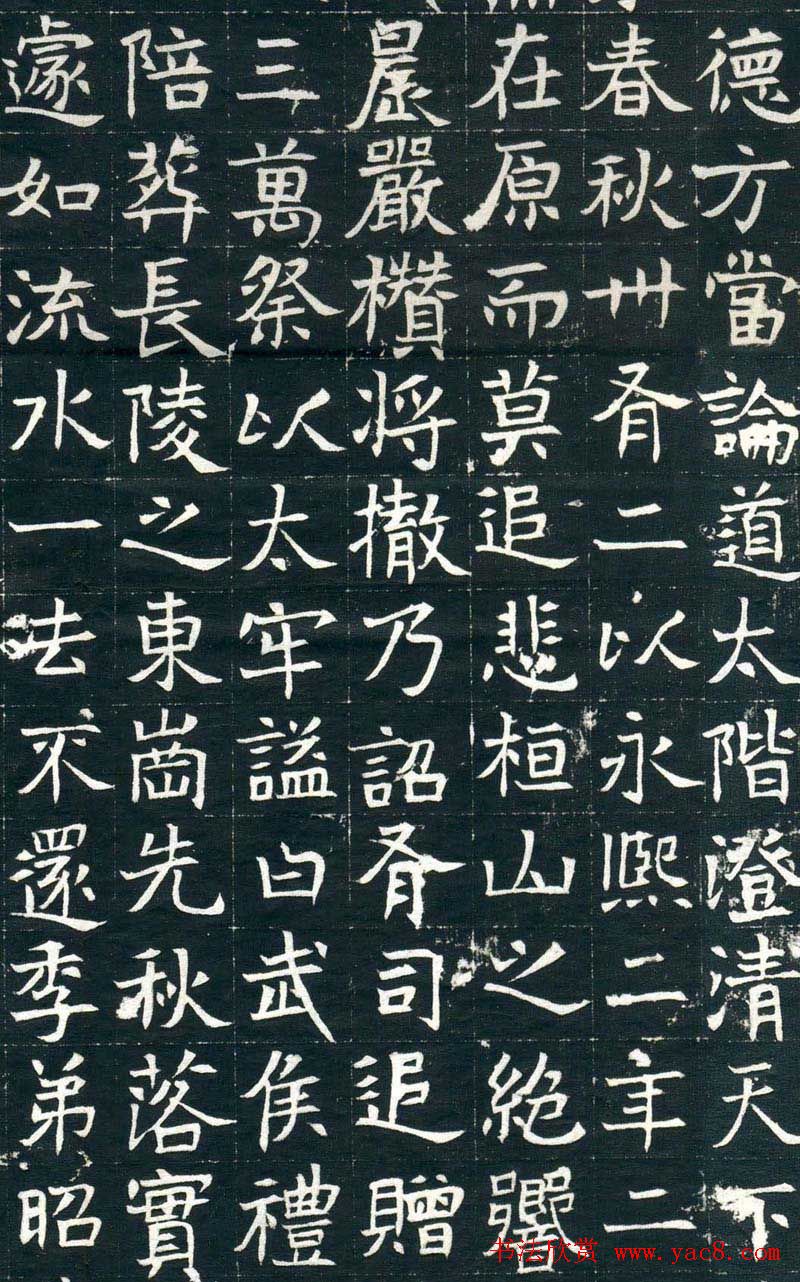 德方當論道太階澄清天下
春秋卅有二以永熙二年二
在原而莫追悲桓山之絶
晨嚴欑将撤乃詔有司追贈
三萬祭以太牢謚曰武侯禮
陪葬長陵之東崗先秋落實
遽如流水一去不還季弟昭
书法欣赏 www.yac8.com